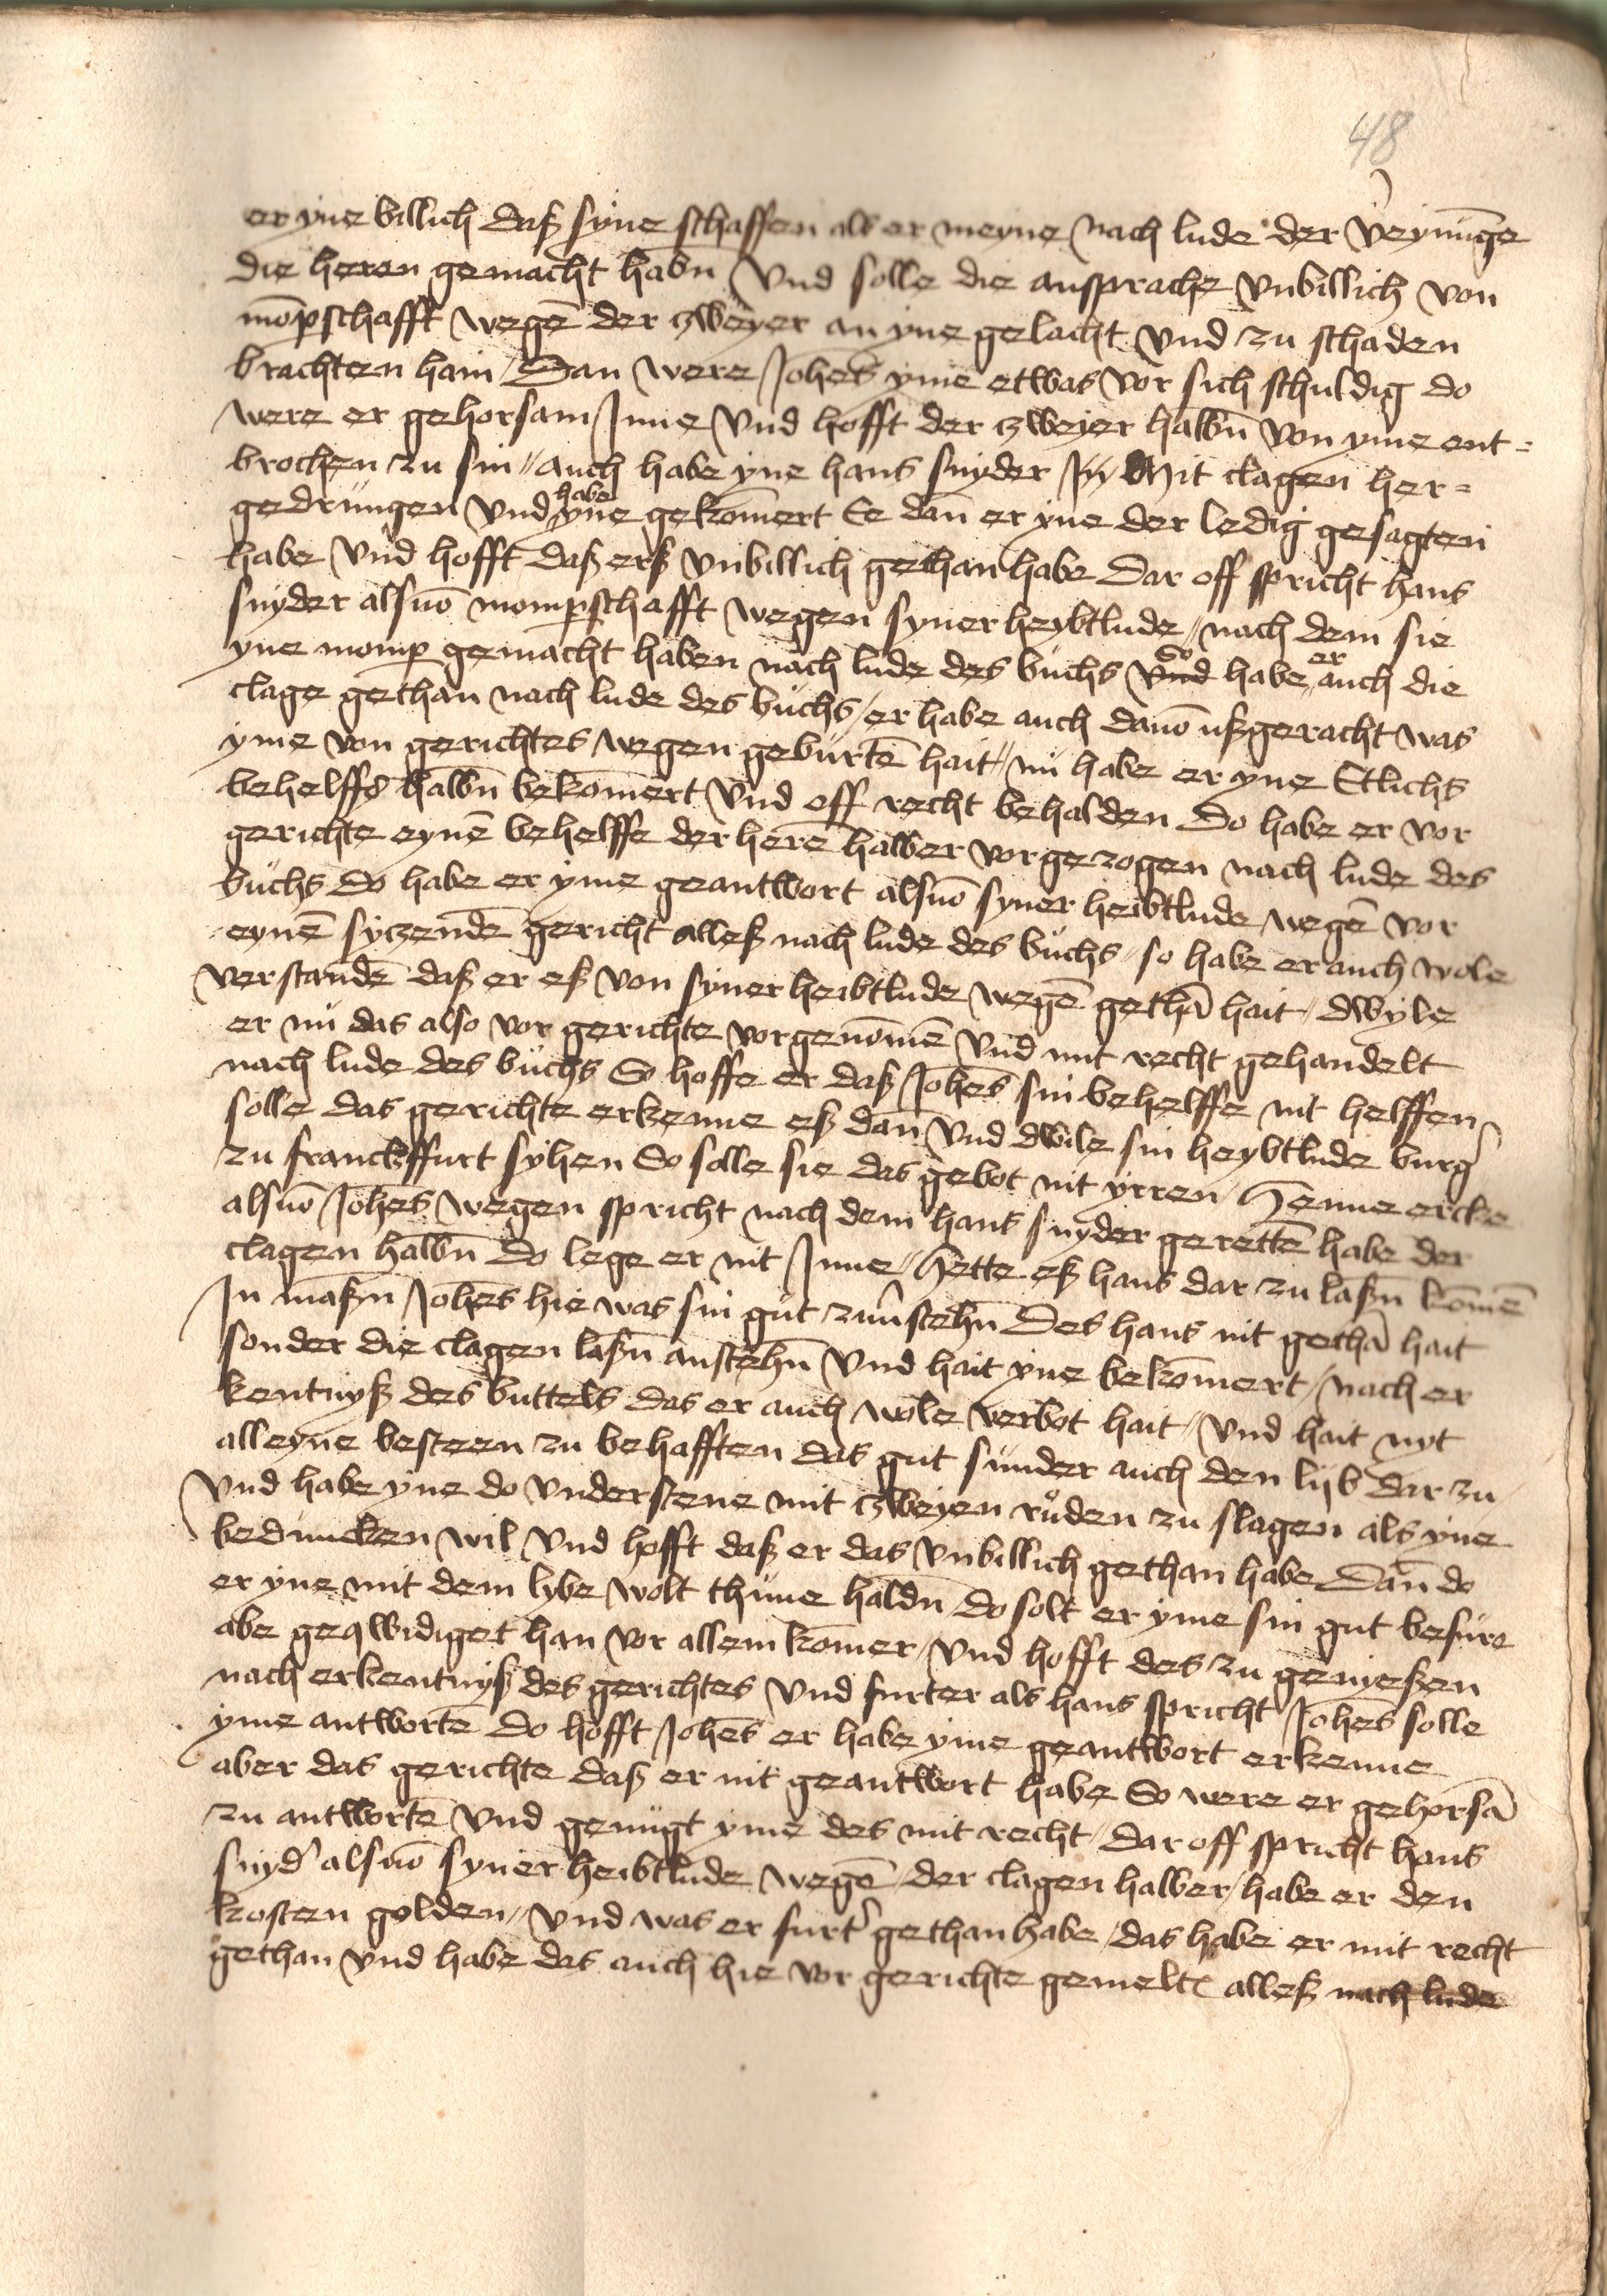 48
er yne billich daß syne schaffen als er meyne nach lude der v̉eynũge
die heren gemacht habñ vnd solle die anspprache vnbillich von
mõpschafft wegẽ der zweyer an yne gelacht vnd zu schaden
brachten hain / Dan were Joh̃es yme etwas vor sich schuldig do
were er gehorsam Inne vnd hofft der zweyer halbñ von yme ent=
brochen zu sin // auch habe yne hans snyder In mit clagen her=
gedrungen vnd habe yne gekom̃ert Ee dan er yne der ledig gesagten
habe vnd hofft daß erß vnbillich gethan habe Dar off spricht hans
snyder alsuõ mompschafft wegen syner heybtlude // nach dem sie
yne momp gemacht haben nach lude des buchs vnd so habe er auch die
clage gethan nach lude des buchs / er habe auch dauõ ußgeracht was
yme von gerichtes wegen geburtẽ hait // nu habe er yne Etlichs
behelffs halbñ bekom̃ert vnd off recht behalden Do habe er vor
gerichte eynẽ behelffe der herẽ halber vorgezogen nach lude des
buchs do habe er yme geantwort alsuõ syner heibtlude wegẽ vor
eynẽ syczendẽ gericht alleß nach lude des buchs // so habe er auch wole
verstandẽ daß er eß von syner heibtlude wegẽ gethã hait // dwyle
er nu das also vor gerichte vorgenom̃ẽ vnd mit recht gehandelt
nach lude des buchs So hoffe er daß Joh̃es sin behelffe nit helffen
solle das gerichte erkenne eß dan vnd dwile sin heybtlude burg̉
zu franckffurt syhen So solle sie das gebot nit yrren / Henne ercke
alsuõ Joh̃es wegen spricht nach dem hans snyder gerettẽ habe der
clagen halbñ Do lege er nit Inne // Hette eß hans dar zu laßñ kom̃ẽ
In maßñ Joh̃es hie was sin gut zuu̓stehñ Des hans nit gethã hait
sonder die clagen laßñ anstehñ vnd hait yne bekom̃ert / nach er
kentnyß des buttels das er auch wole verbot hait // vnd hait nyt
alleyne besteen zu behafften das gut sunder auch den lijb dar zu /
vnd habe yne do vnderstene mit zweyen růden zu slagen als yne
beduncken wil vnd hofft daß er das vnbillich gethan habe Dan do
er yne mit dem lybe wolt thune haldñ / do solt er yme sin gut befure
abe geqwidiget han vor allem kom̃er / vnd hofft des zu genyeßen
nach erkentnyß des gerichtes vnd furter als hans spricht Joh̃es solle
yme antwortẽ Do hofft Joh̃es er habe yme geantwort erkenne
aber das gerichte daß er nit geantwort habe So were er gehorsã
zu antwortẽ vnd genugt yme des mit recht // dar off spricht hans
snyd̉ alsuõ syner heibtlude wegẽ / der clagen halber / habe er den
kosten golden // vnd was er furt̉ gethan habe / das habe er mit recht
gethan vnd habe das auch hie vor gerichte gemelt alleß nach lude